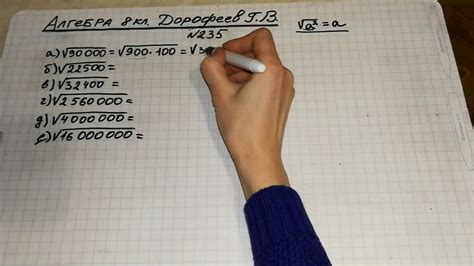 Алгебра 8 кл. Дорофеев Г.В.
√a² = a
№235
а) √90 000 = √900·100 = √3
б) √22500 =
в) √32400 =
г) √2 560 000 =
д) √4 000 000 =
е) √16 000 000 =